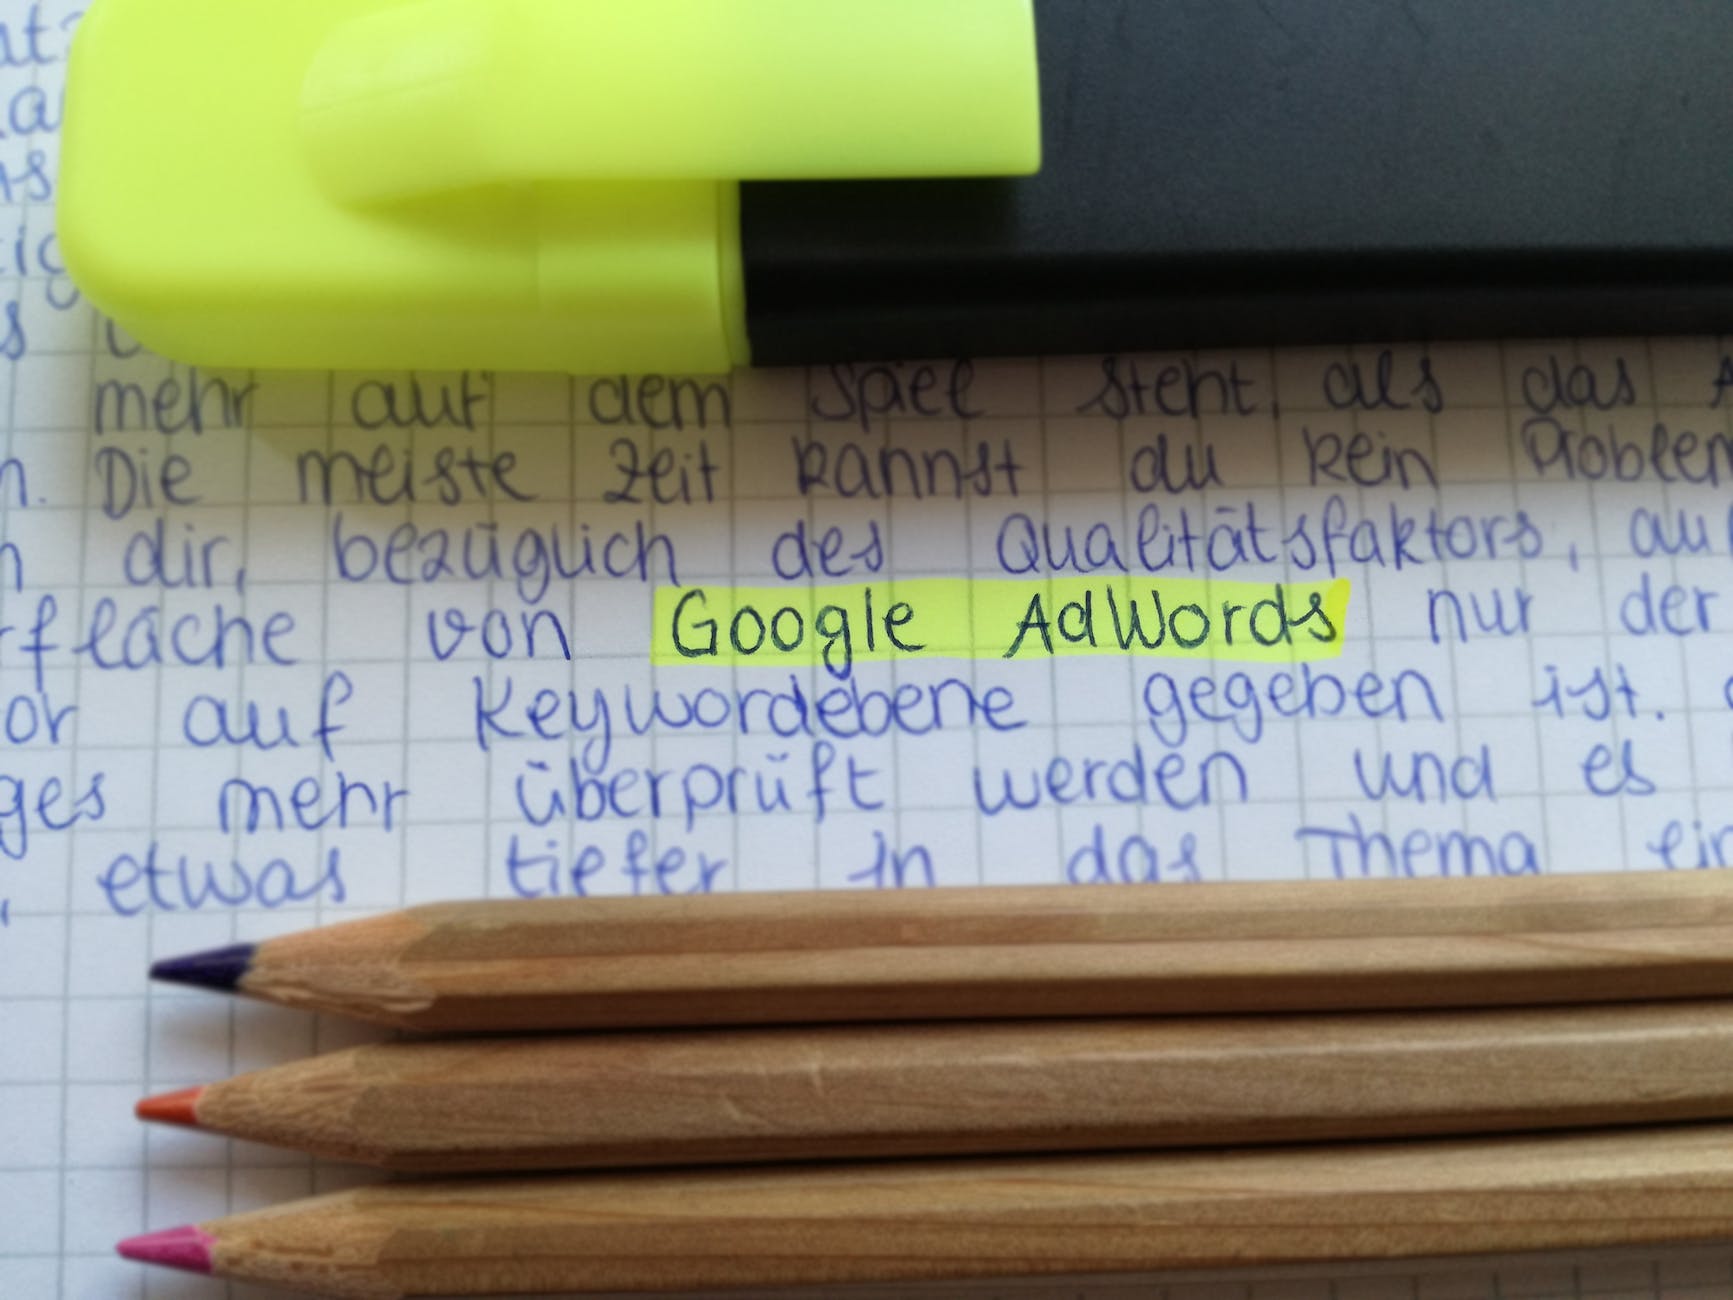 mehr auf dem Spiel steht, als das
n. Die meiste Zeit kannst du kein Problem
dir, bezüglich des Qualitätsfaktors, au
rfläche von Google AdWords nur der
or auf Keywordebene gegeben ist.
ges mehr überprüft werden und es
, etwas tiefer in das Thema ein